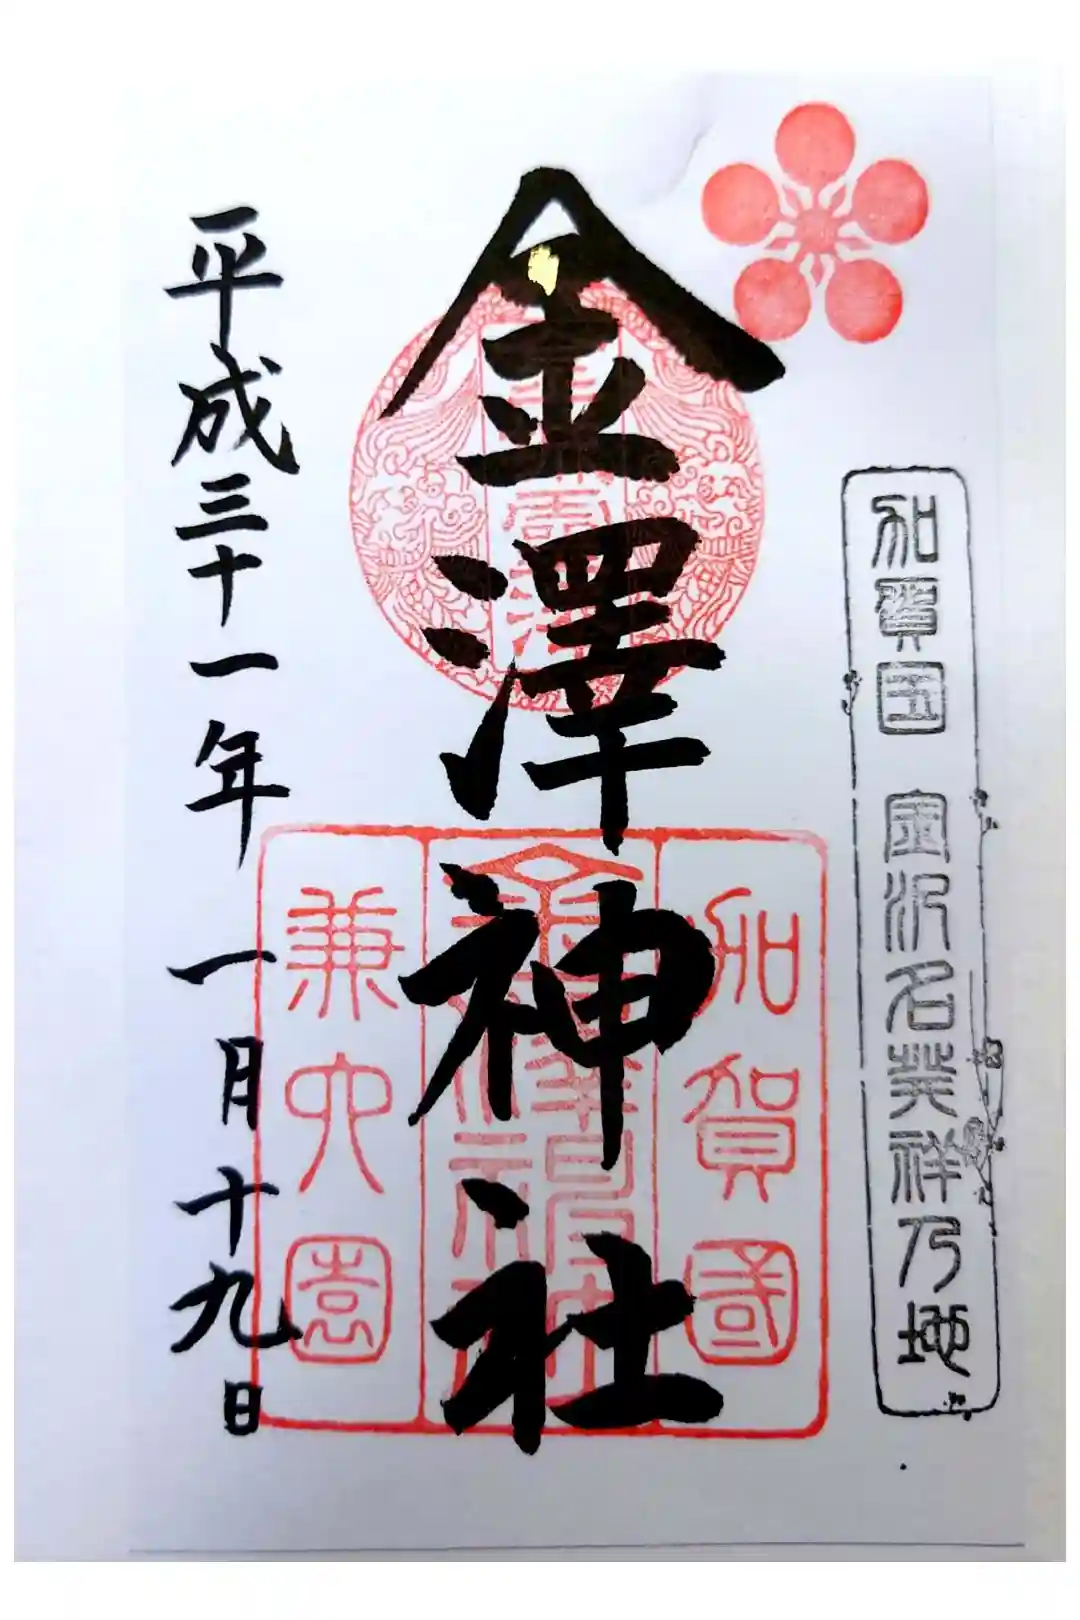 加賀国 金沢名発祥乃地
金澤神社
加賀國
金澤神社
兼六園
平成三十一年一月十九日